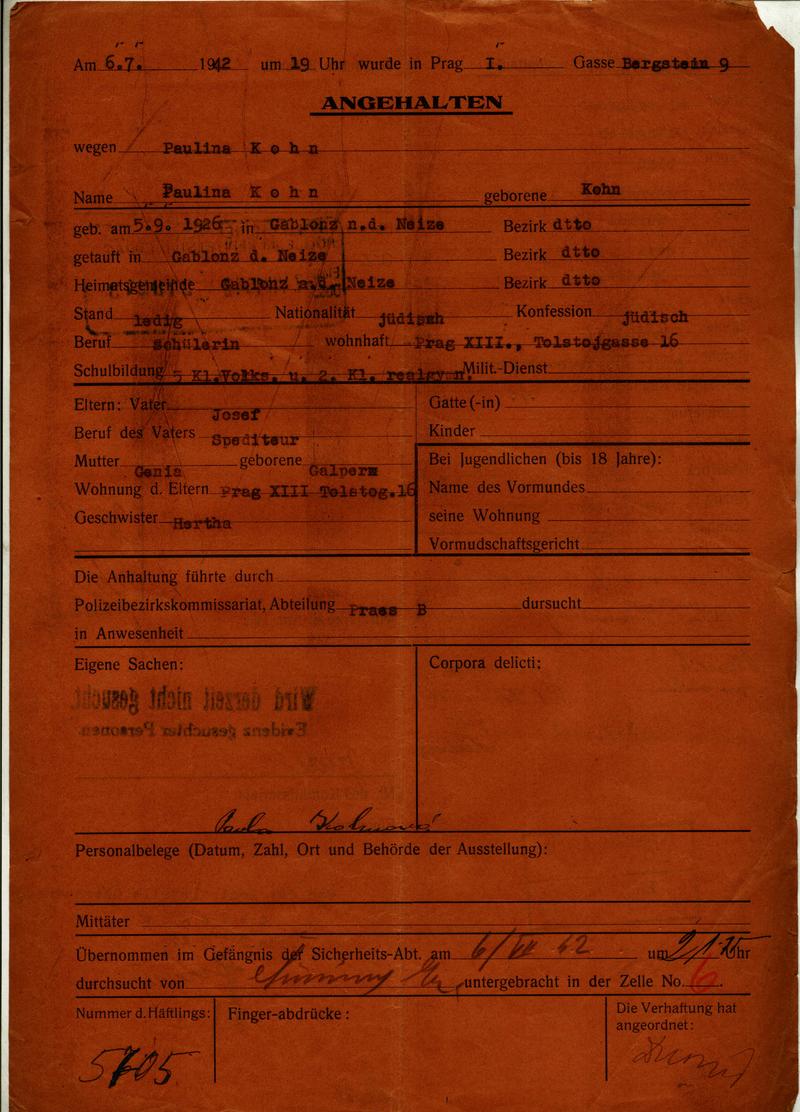 Am 6.7. 1942 um 19 Uhr wurde in Prag I. Gasse Bergstein 9
ANGEHALTEN
wegen Paulina Kohn
Name Paulina Kohn geborene Kohn
geb. am 5.9. 1926 in Gablonz n.d. Neize Bezirk dtto
getauft in Gablonz d. Neize Bezirk dtto
Heimatsgemeinde Gablonz a.d. Neize Bezirk dtto
Stand ledig Nationalität jüdisch Konfession jüdisch
Beruf Schülerin wohnhaft Prag XIII., Tolstojgasse 16
Schulbildung 5 Kl.Volks. u. 2. Kl. realgyn. Milit.-Dienst
Eltern: Vater Josef Gatte (-in)
Beruf des Vaters Spediteur Kinder
Mutter Genia geborene Galperm Bei Jugendlichen (bis 18 Jahre):
Wohnung d. Eltern Prag XIII Tolstog.16 Name des Vormundes
Geschwister Hertha seine Wohnung
Vormudschaftsgericht
Die Anhaltung führte durch
Polizeibezirkskommissariat, Abteilung Praes B dursucht
in Anwesenheit
Eigene Sachen: Corpora delicti:
Wird derzeit nicht gesucht
Evidenz gesuchter Personen
Paula
Personalbelege (Datum, Zahl, Ort und Behörde der Ausstellung):
Mittäter
Übernommen im Gefängnis der Sicherheits-Abt. am 6/VII 42 um Uhr
durchsucht von untergebracht in der Zelle No. 6.
Nummer d. Häftlings: Finger-abdrücke: Die Verhaftung hat
angeordnet:
5705